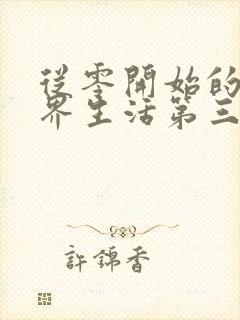 從零開始的
界生活第三
許錦香